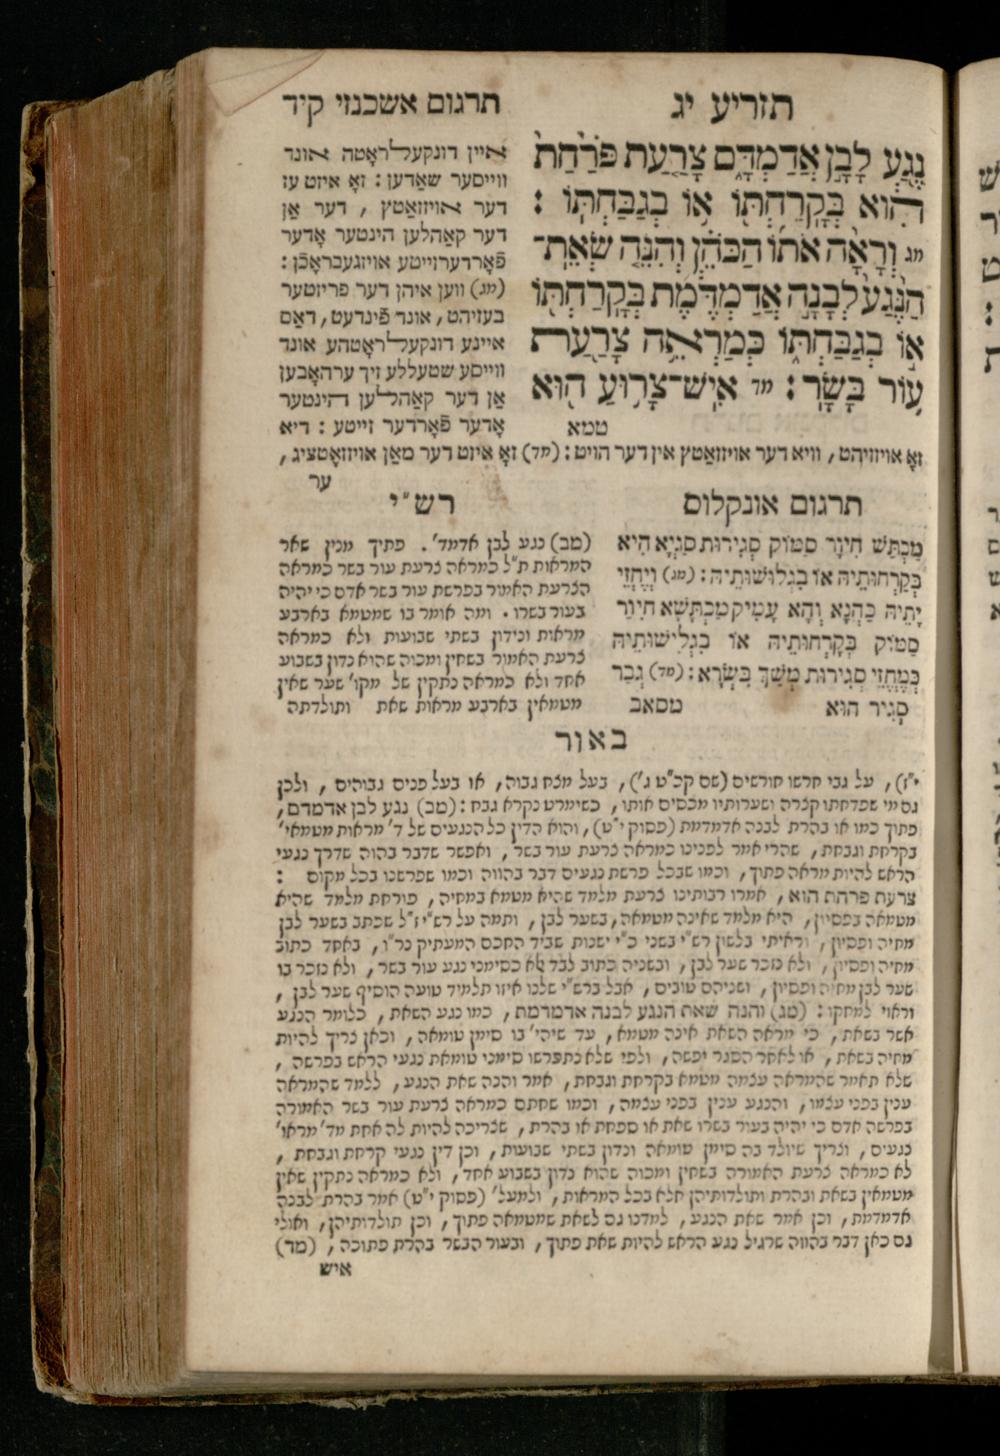 תזריע יג
תרגום אשכנזי קיד
נֶ֥גַע לָבָ֖ן אֲדַמְדָּ֑ם צָרַ֤עַת פֹּרַ֙חַת֙
הִ֔וא בְּקָרַחְתּ֖וֹ א֥וֹ בְגַבַּחְתּֽוֹ :
מג וְרָאָ֨ה אֹת֜וֹ הַכֹּהֵ֗ן וְהִנֵּ֤ה שְׂאֵת־
הַנֶּ֙גַע֙ לְבָנָ֣ה אֲדַמְדֶּ֔מֶת בְּקָרַחְתּ֖וֹ
א֣וֹ בְגַבַּחְתּ֑וֹ כְּמַרְאֵ֥ה צָרַ֖עַת
ע֥וֹר בָּשָֽׂר : מד אִישׁ־צָר֥וּעַ ה֖וּא
טמא
איין דונקעל־ראָטה אונד
ווייסער שאַדען : זאָ איזט עז
דער אויזזאַטץ , דער אָן
דער קאַהלען הינטער אָדער
פֿאָרדערזייטע אויזגעבראָכֿן :
(מג) ווען איהן דער פריזטער
בעזיהט , אונד פֿינדעט , דאַס
איינע דונקעל־ראָטהע אונד
ווייסע שטעללע זיך ערהאָבען
אָן דער קאַהלען הינטער
אָדער פֿאָרדער זייטע : דיא
זאָ אויזזיהט , וויא דער אויזזאַטץ אין דער הויט : (מד) זאָ איזט דער מאַן אויזזאָטציג ,
ער
תרגום אונקלוס
מַכְתַּשׁ חִיוַר סַמּוֹק סְגִירוּת סַגְיָא הִיא
בְּקַרְחוּתֵיהּ אוֹ בִגְלוֹשׁוּתֵיהּ : (מג) וְיֶחֱזֵי
יָתֵיהּ כַּהֲנָא וְהָא עֲמִיק מַכְתָּשָׁא חִיוַר
סַמּוֹק בְּקַרְחוּתֵיהּ אוֹ בִגְלִישׁוּתֵיהּ
כְּמֶחֱזֵי סְגִירוּת מְשַׁךְ בִּשְׂרָא : (מד) גְּבַר
סְגִיר הוּא מסאב
רש"י
(מב) נגע לבן אדמד' . פתוך מנין שאר
המראות ת"ל כמראה צרעת עור בשר כמראה
הצרעת האמור בפרשת עור בשר אדם כי יהיה
בעור בשרו . ומה אומר בו שמטמא בארבע
מראות ונידון בשתי שבועות ולא כמראה
צרעת האמור בשחין ומכוה שהוא נדון בשבוע
אחד ולא כמראה נתקין של מקו' שער שאין
מטמאין בארבע מראות שאת ותולדתה
באור
י"ז) , על גבי חרשו חורשים (שם קכ"ט ג') , בעל מצח גבוה , או בעל פנים גבוהים , ולכן
גם מי שפדחתו קצרה ושערותיו מכסים אותו , כשימרט נקרא גבח : (מב) נגע לבן אדמדם ,
פתוך כמו או בהרת לבנה אדמדמת (פסוק י"ט) , והוא הדין כל הנגעים של ד' מראות מטמאי'
בקרחת וגבחת , שהרי אמר לפנינו כמראה צרעת עור בשר , ואפשר שדבר בהוה שדרך נגעי
הראש להיות מראה פתוך , וכמו שבכל פרשת נגעים דבר בהווה וכמו שפרשנו בכל מקום :
צרעת פרחת הוא , אמרו רבותינו צרעת מלמד שהיא מטמא במחיה , פורחת מלמד שהיא
מטמאה בפסיון , היא מלמד שאינה מטמאה , בשער לבן , ותמה על רש"י ז"ל שכתב בשער לבן
מחיה ופסיון , וראיתי בלשון רש"י בשני כ"י ישנות שביד החכם המעתיק נר"ו , באחד כתוב
מחיה ופסיון , ולא נזכר שער לבן , ובשניה כתוב לבד לא כסימני נגע עור בשר , ולא נזכר בו
שער לבן מחיה ופסיון , ושניהם טובים , אבל ברש"י שלנו איזו תלמיד טועה הוסיף שער לבן ,
וראוי למחקו : (מג) והנה שאת הנגע לבנה אדמדמת , כמו נגע השאת , כלומר הנגע
אשר בשאת , כי מראה השאת אינה מטמא , עד שיהי' בו סימן טומאה , וכאן צריך להיות
מחיה בשאת , או לאחר הסגר יפשה , ולפי שלא נתפרשו סימני טומאת נגעי הראש בפרשה ,
שלא תאמר שהמראה עצמה מטמא בקרחת וגבחת , אמר והנה שאת הנגע , ללמד שהמראה
ענין בפני עצמו , והנגע ענין בפני עצמה , וכמו שחתם כמראה צרעת עור בשר האמורה
בפרשה אדם כי יהיה בעור בשרו שאת או ספחת או בהרת , שצריכה להיות לה אחת מד' מראו'
נגעים , וצריך שיולד בה סימן טומאה ונדון בשתי שבועות , וכן דין נגעי קרחת וגבחת ,
לא כמראה צרעת האמורה בשחין ומכוה שהוא נדון בשבוע אחד , ולא כמראה נתקין שאין
מטמאין בשאת ובהרת ותולדותיהן אלא בכל המראות , ולמעל' (פסוק י"ט) אמר בהרת לבנה
אדמדמת , וכן אמר שאת הנגע , למדנו גם לשאת שמטמאה פתוך , וכן תולדותיהן , ואולי
גם כאן דבר בהווה שרגיל נגע הראש להיות שאת פתוך , ובעור הבשר בהרת פתוכה , (מד)
איש